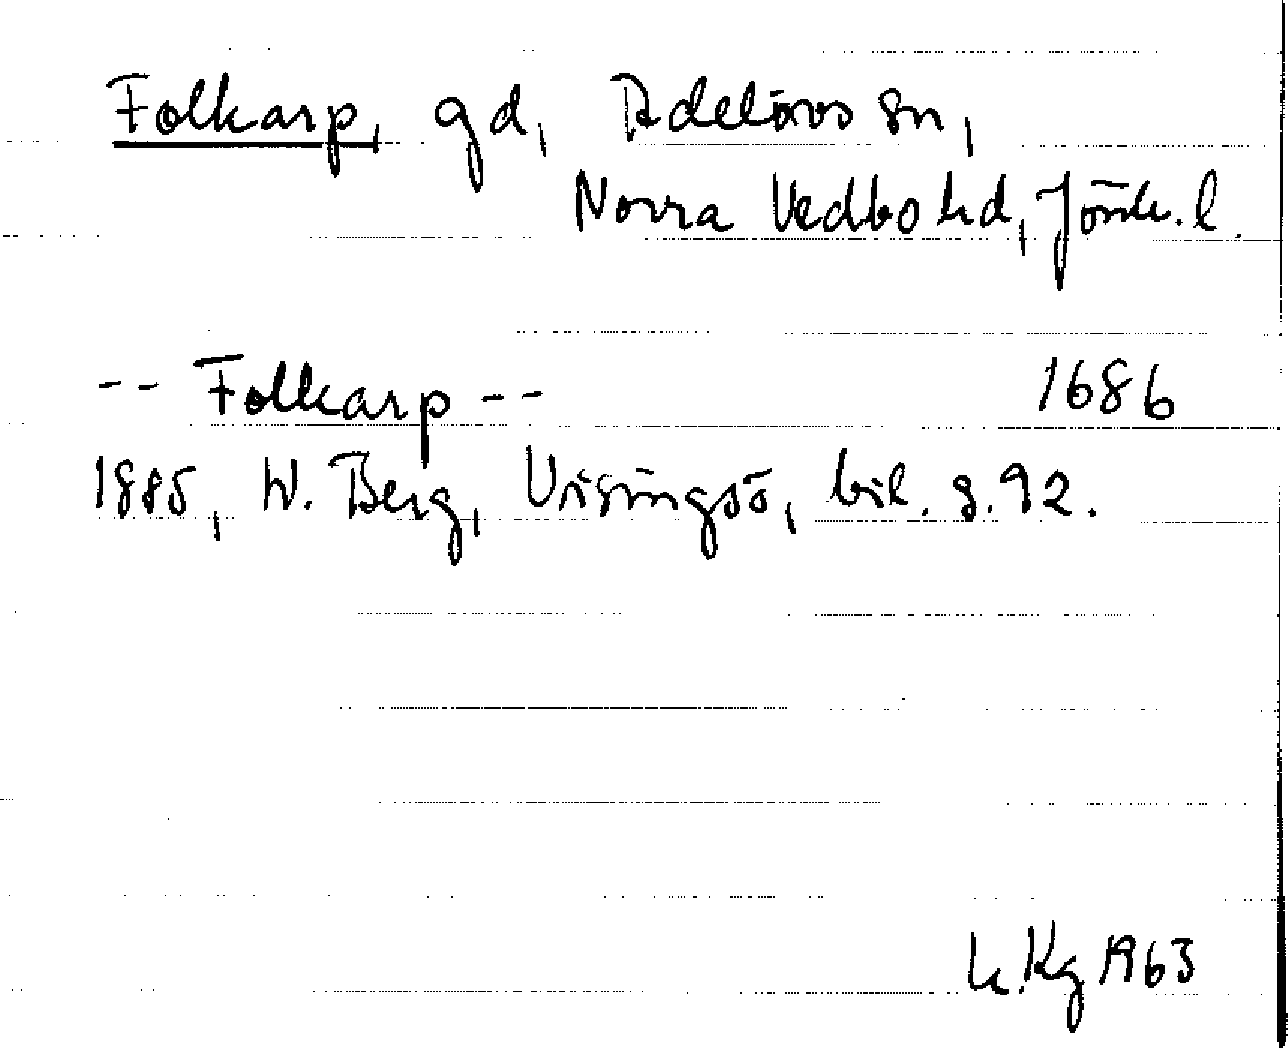 Folkarp, gd, Adelövs sn,
Norra Vedbo hd, Jönk. l.
-- Folkarp -- 1686
1885, W. Berg, Visingsö, bil. s. 92.
K. Kg 1963